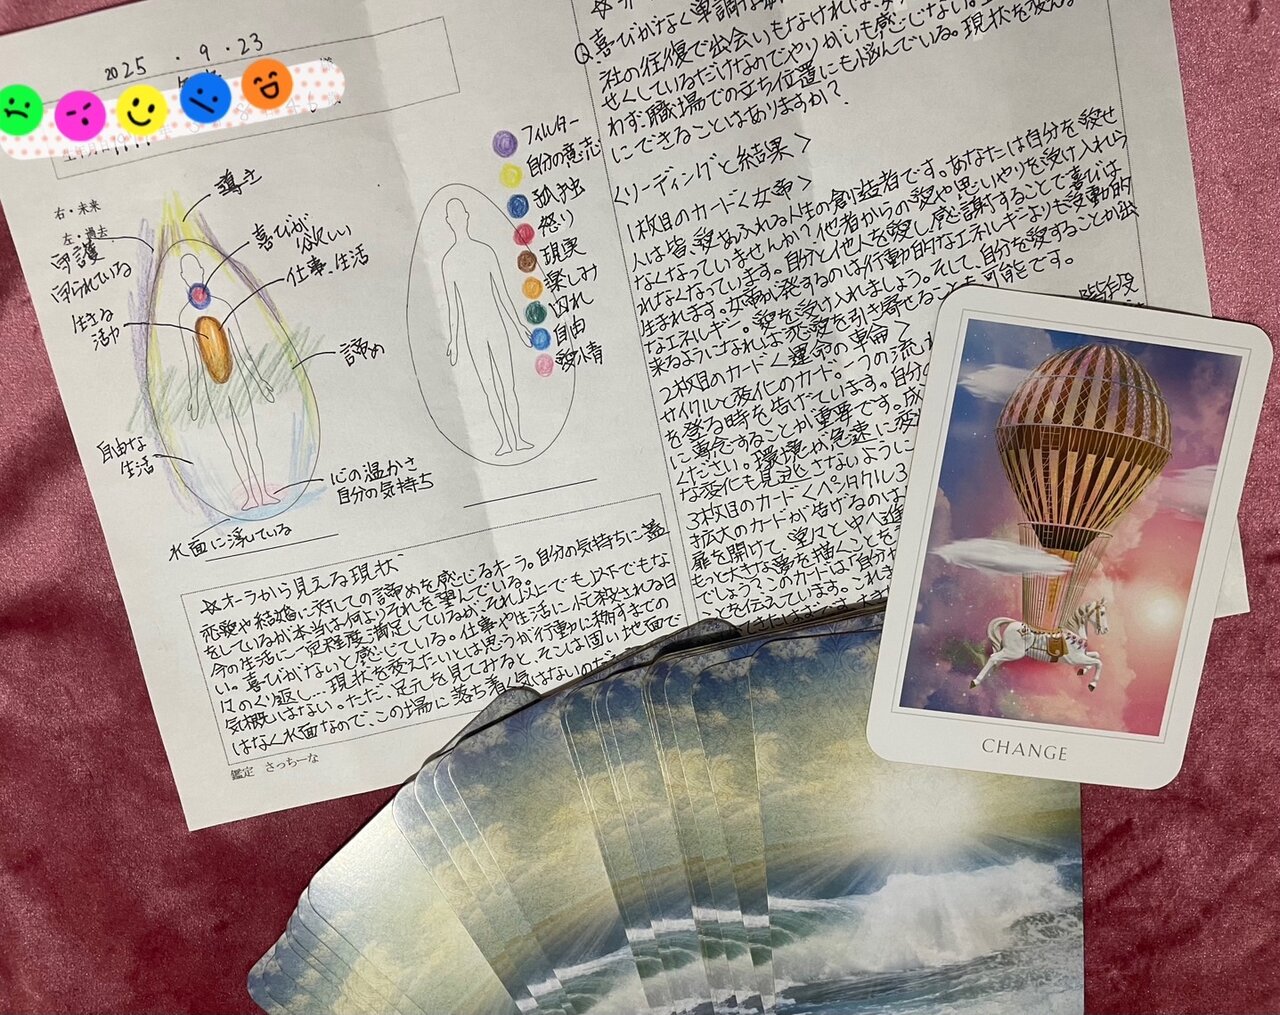 2025・9・23
右・未来
左・過去
守護
守られている
生きる
活力
自由な
生活
水面に浮いている
喜びが
欲しい
仕事、生活
諦め
心の温かさ
自分の気持ち
フィルター
自分の意志
孤独
怒り
現実
楽しみ
囚れ
自由
愛情
☆オーラから見える現状
恋愛や結婚に対しての諦めを感じるオーラ。自分の気持ちに蓋
をしているが本当は何よりそれを望んでいる。
今の生活に一定程度満足しているが、それ以上でも以下でもな
い。喜びがないと感じている。仕事や生活に忙殺される日
はのくり返し…現状を変えたいとは思うが行動に移すまでの
気概はない。ただ、足元を見てみると、そこは固い地面で
はなく水面なので、この場に落ち着く気はないのだ
鑑定 さっちーな
Q.喜びがなく単調な
社の往復で出会いもなければ、
せくしているだけなのでやりがいも感じない。
わず、職場での立ち位置にも悩んでいる。現状を変える
にできることはありますか?
<リーディングと結果>
1枚目のカード<女帝>
人は皆、愛あふれる人生の創造者です。あなたは自分を愛せ
なくなっていませんか?他者からの愛や思いやりを受け入れら
れなくなっています。自分と他人を愛し感謝することで喜びは
生まれます。女帝が発するのは行動的なエネルギーよりも受動的
なエネルギー。愛を受け入れましょう。そして、自分を愛することが出
来るようになれば恋愛を引き寄せることも可能です。
2枚目のカード<運命の輪>
サイクルと変化のカード。一つの流れ
を登る時を告げています。自分の
に専念することが重要です。成
ください。環境が急速に変
な変化も見逃さないように
3枚目のカード<ペンタクル3
拡大のカードが告げるのは
扉を開けて、堂々と中へ進
もっと大きな夢を描くことを
でしょう?このカードは「自分や
ことを伝えています。これま
CHANGE